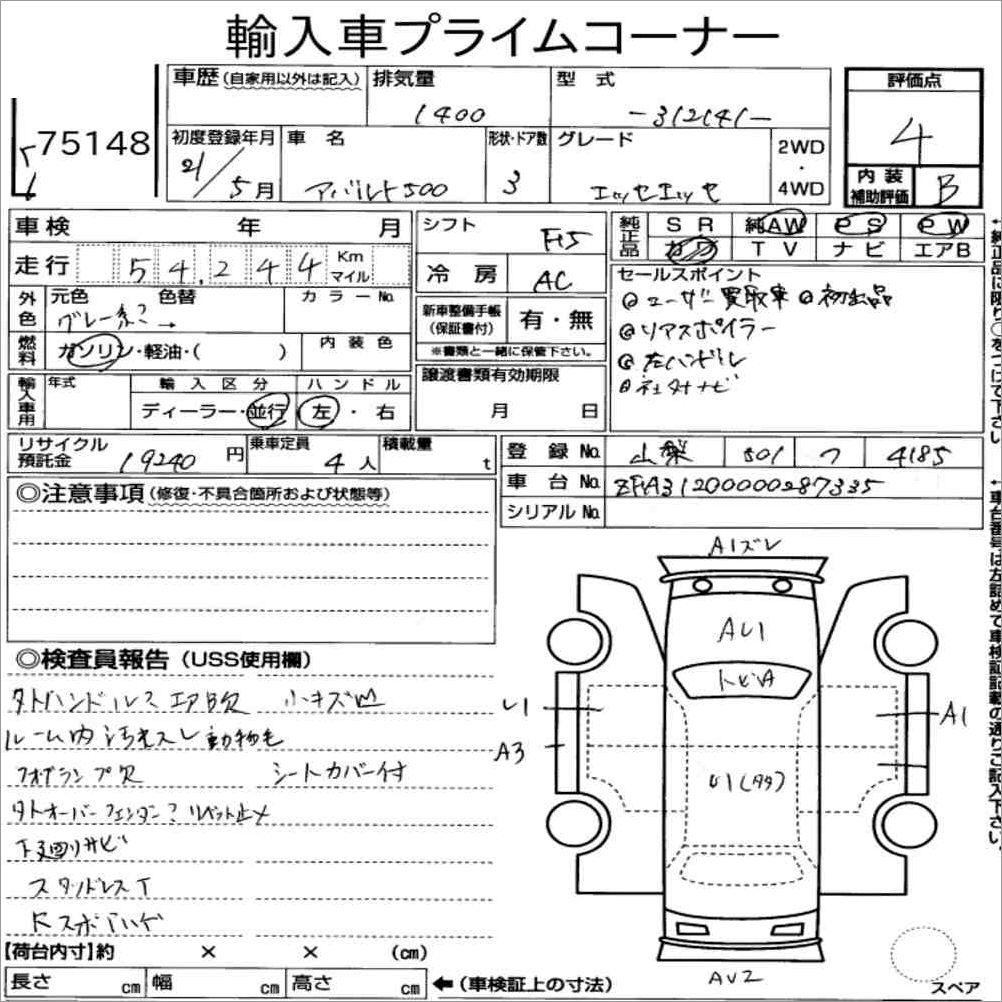 輸入車プライムコーナー
75148
車歴(自家用以外は記入) 排気量 1400 型式 -312141-
評価点 4
初度登録年月 21/5月 車名 アバルト500 形状・ドア数 3 グレード エッセエッセ 2WD・4WD
内装補助評価 B
車検 年 月
走行 54,244 Km マイル
外色 元色 グレー系? → 色替 カラーNo.
燃料 ガソリン・軽油・( ) 内装色
輸入車用 年式 輸入区分 ディーラー・並行 ハンドル 左・右
シフト F5
冷房 AC
新車整備手帳(保証書付) 有・無
※書類と一緒に保管下さい。
譲渡書類有効期限
月 日
純正品 SR 純AW PS PW
カワ TV ナビ エアB
セールスポイント
@ユーザー買取車 @初出品
@リアスポイラー
@左ハンドル
@社外ナビ
←純正品に限り○をつけて下さい
リサイクル預託金 19240円 乗車定員 4人 積載量 t
登録No. 山梨 501 つ 4185
車台No. ZFA31200000287335
シリアルNo.
←車台番号は左詰めで車検証記載の通りご記入下さい。
◎注意事項(修復・不具合箇所および状態等)
◎検査員報告(USS使用欄)
タトハンドル? エアB欠 小キズ凹
ルーム内 汚れスレ 動物毛
フォグランプ欠 シートカバー付
タトオーバーフェンダー? リベット止メ
下廻りサビ
スタッドレスT
A1ズレ
AU1
トビA
U1
A3
A1
U1(タタ)
AV2
スペア
【荷台内寸】約 × × (cm)
長さ cm 幅 cm 高さ cm ←(車検証上の寸法)